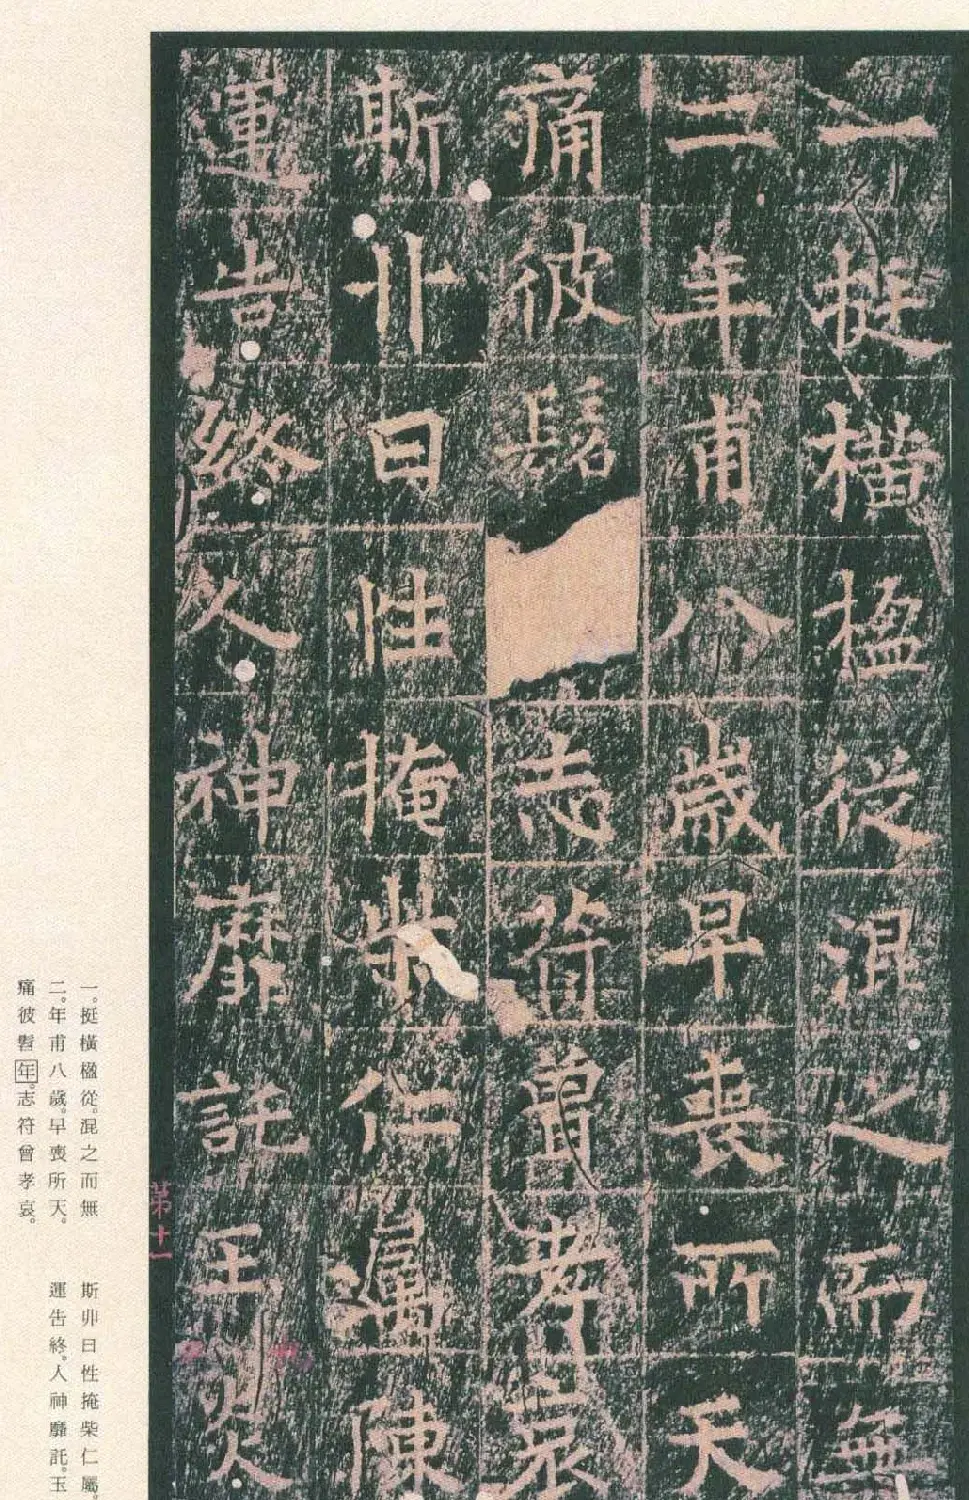 一挺橫楹從混之而無
二年甫八歲早喪所天
痛彼髫志符曾孝哀
斯丱日性掩柴仁屬陳
運告終人神靡託玉炎
第十一
一。挺橫楹從。混之而無
二。年甫八歲。早喪所天。
痛彼髫年。志符曾孝哀。
斯丱日性掩柴仁屬。
運告終。人神靡託。玉